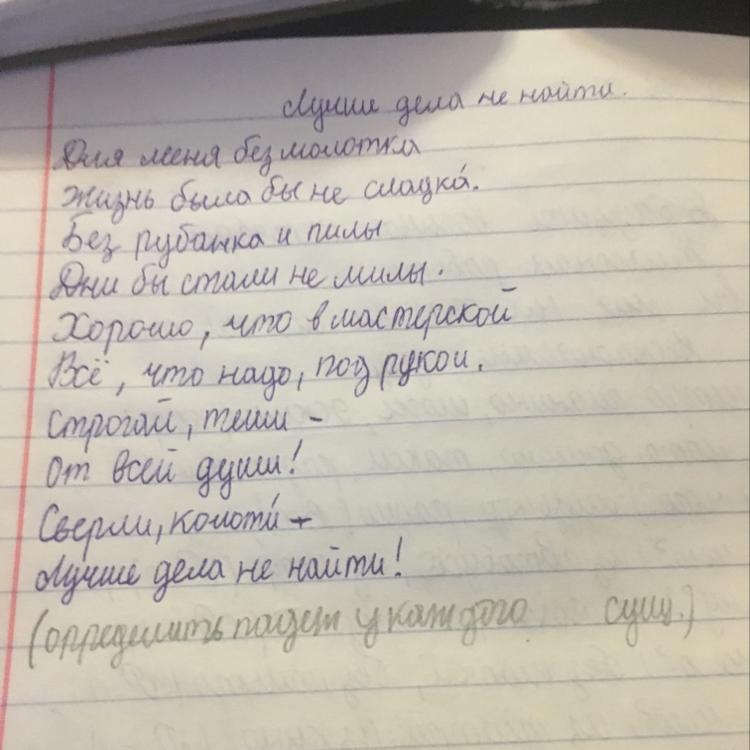 Лучше дела не найти.
Для меня без молотка
Жизнь была бы не сладка́.
Без рубанка и пилы
Дни бы стали не милы.
Хорошо, что в мастерской
Всё, что надо, под рукой.
Строгай, теши –
От всей души!
Сверли, колоти́ –
Лучше дела не найти!
(определить падеж у каждого сущ.)